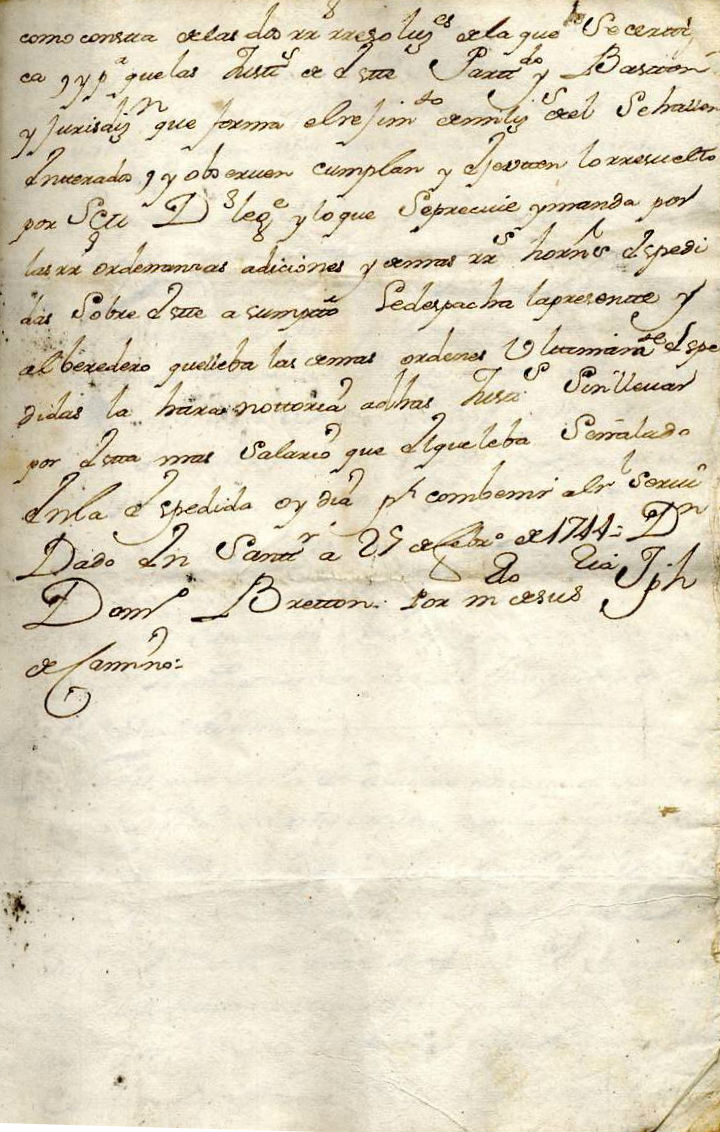 como consta de las dos rr^s rresoluz^es de la que Se certifi
ca, y p^a que las Justt^s de Estte Partt^do y Baston
y Jurisdiz^n que forma el rejim^to de miliz^s del Se hallen
Entterados, y obseruen cumplan y Ejecutten lo rresuelto
por y lo que Se preuiene y manda por
las rr^s ordenanzas adiciones y demas rr^s horns Espedi
das Sobre Estte asumptto Se despacha la presentte y
al beredero que lleba las demas ordenes Vlttimam^te Espe
didas la hara nottoria a dhas Justt^s Sin lleuar
por Estta mas Salario que El que leba Señalado
En la Espedida oy dia p^r combenir al r^l Serui^o
Dado En Santt^r a 25 de febr^o de 1744= D^n
Dom^o Bretton. Por m^do de su s^ria Jph
de Camino=